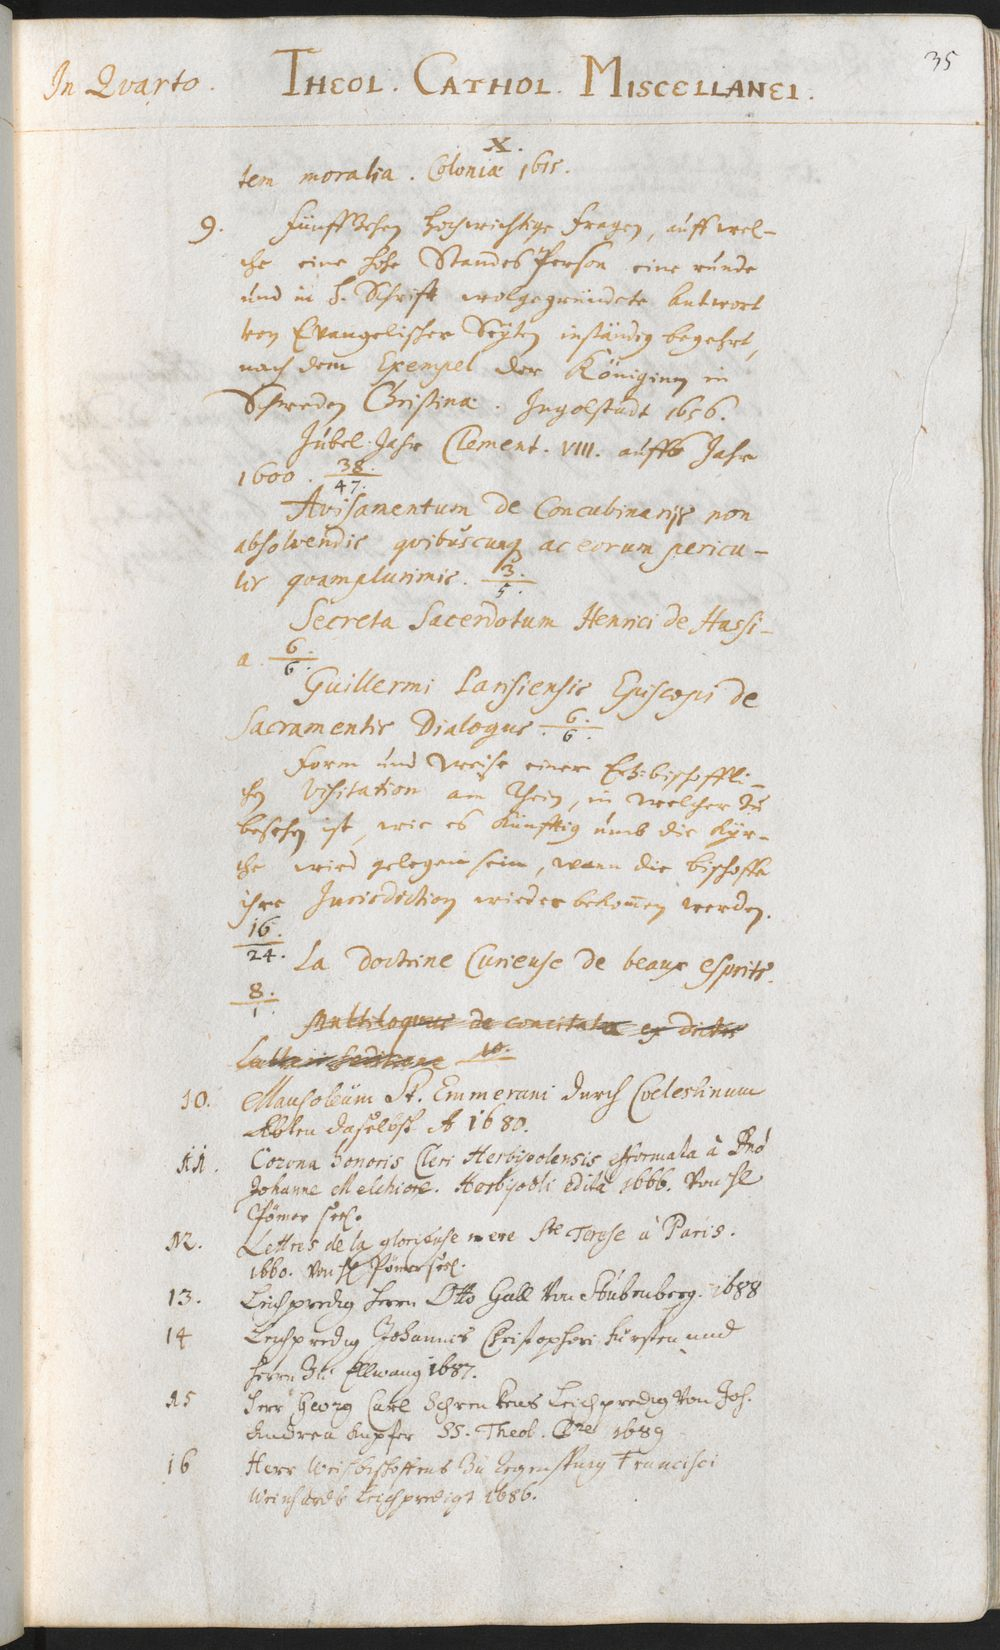 35
In Qvarto. THEOL. CATHOL. MISCELLANEI.
X.
tem moralia. Coloniæ 1615.
9. Fünffzehen hochwichtige Fragen, auff wel-
che eine hohe Standes Person eine runde
und in H. Schrifft wolgegründete Antwort
von Evangelischer Seyten inständig begehrt,
nach dem Exempel der Königinn in
Schweden Christina. Ingolstadt 1656.
Jubel-Jahr Clement. VIII. auffs Jahr
1600. 38./47.
Avisamentum de Concubinarijs non
absolvendis qvibuscunq ac eorum pericu-
lis qvamplurimis. 3./5.
Secreta Sacerdotum Henrici de Hassi-
a. 6./6.
Guillermi Parisiensis Episcopi de
Sacramentis Dialogus. 6./6.
Form und Weise einer Ertzbischoffli-
chen Visitation am Rhein, in welcher zu
besehen ist, wie es künfftig umb die Kyr-
che wird gelegen sein, wann die Bischoffe
ihre Jurisdiction wieder bekom̃en werden.
16./24.
La Doctrine Curieuse de beaux esprits.
8./1.
de concitata ex dictis
10.
10. Mausoleum St. Emmerani durch Coelestinum
Abten daselbst A 1680.
11. Corona honoris Cleri Herbipolensis efformata à Dnō
Johanne Melchiore. Herbipoli edita 1666. Von H
Pömer seel.
12. Lettres de la glorieuse mere Ste Terese à Paris.
1660. Von H Pömer seel.
13. Leichpredig Herrn Otto Gall Von Stubenberg. 1688
14 Leichpredig Johannis Christophori Fürsten und
Herrn Zu Ellwang 1687.
15 Herr Georg Carl Leichpredig Von Joh.
Andrea Kupfer SS. Theol. 1689
16 Herr Weihbischoffens Zu Regenspurg Francisci
Weinhards Leichpredigt 1686.